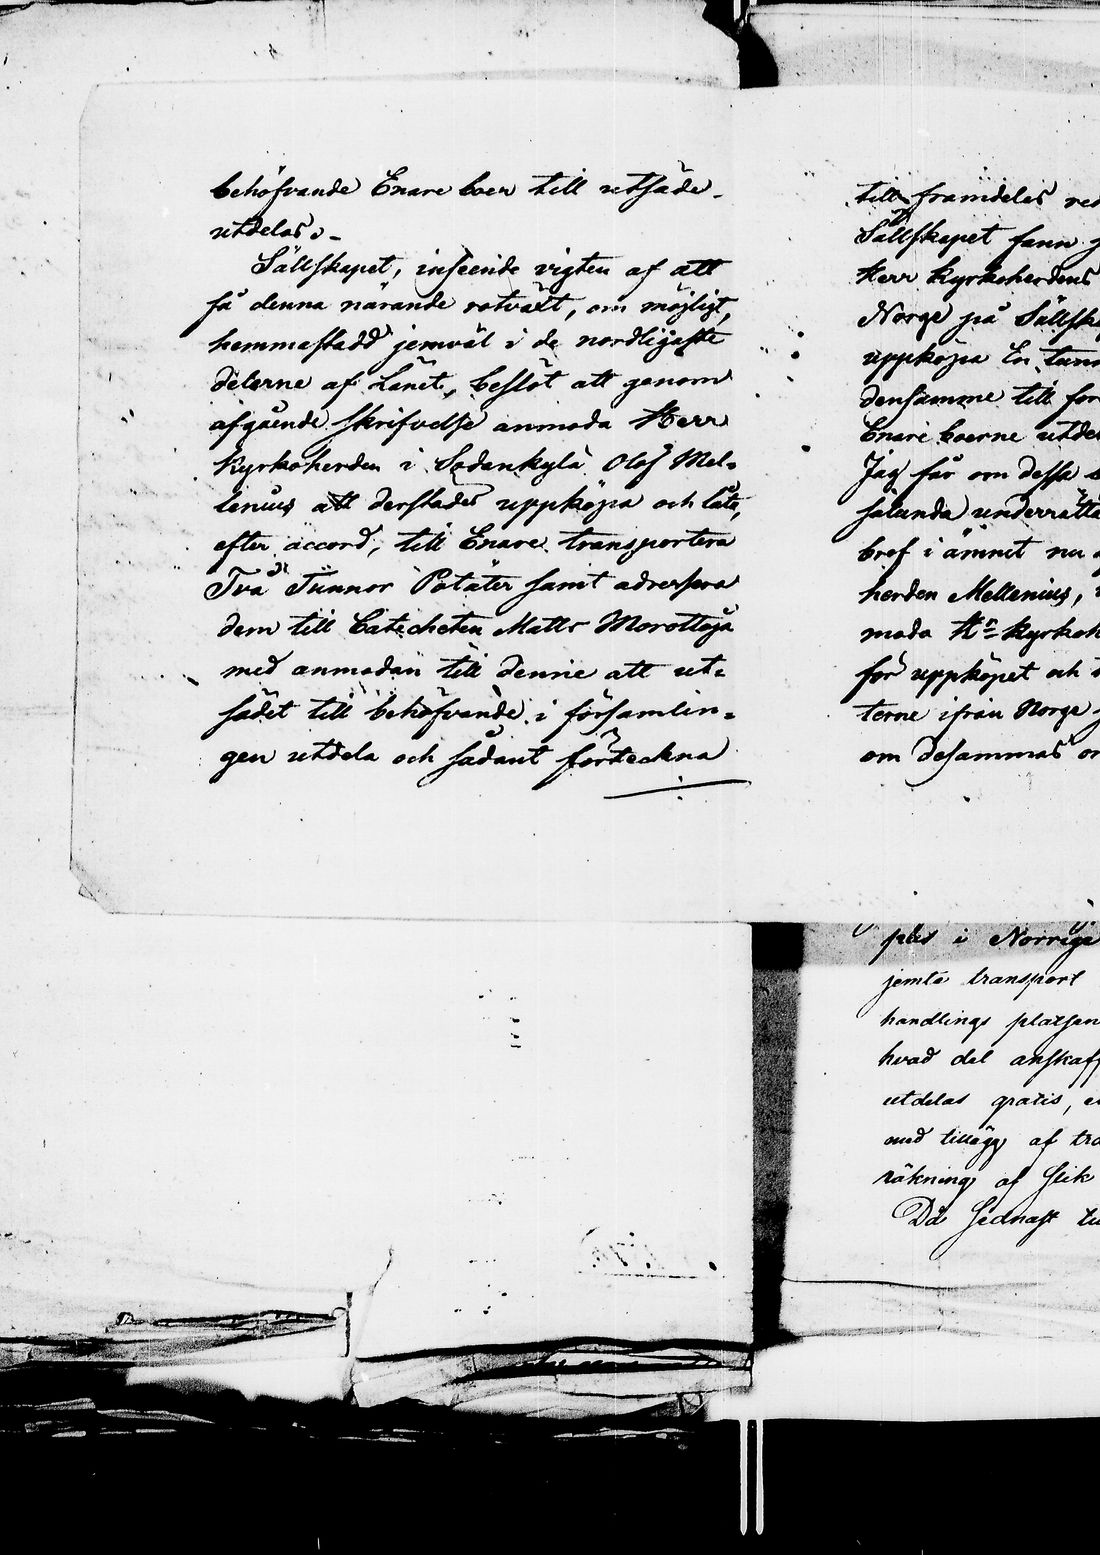 behöfvande Enare boer till utsäde
utdelas.
Sällskapet, inseende vigten af att
få denna närande rotväxt, om möjligt,
hemmastadd jemväl i de nordligaste
delerne af Länet, beslöt att genom
afgående skrifvelse anmoda Herr
Kyrkoherden i Sodankylä Olof Mel-
lenius att derstädes uppköpa och låta,
efter accord, till Enare transportera
Två Tunnor Potäter samt adressera
dem till Catecheten Matts Morottaja
med anmodan till denne att ut-
sädet till behöfvande i församlin-
gen utdela och sådant förteckna
till framdeles red
Sällskapet fann
Herr Kyrkoherdens
Norge på Sällska
uppköpa En tunn
densamme till för
Enare boerne utde
Jag får om dessa
sålunda underrätta
bref i ämnet nu
herden Mellenius,
moda Hr Kyrkoh
för uppköpet och
terne ifrån Norge
om desammas
pas i Norrige
jemte transport
handlings platsen
hvad del anskaff
utdelas gratis,
med tillägg af tra
räkning af slik
Då sednast